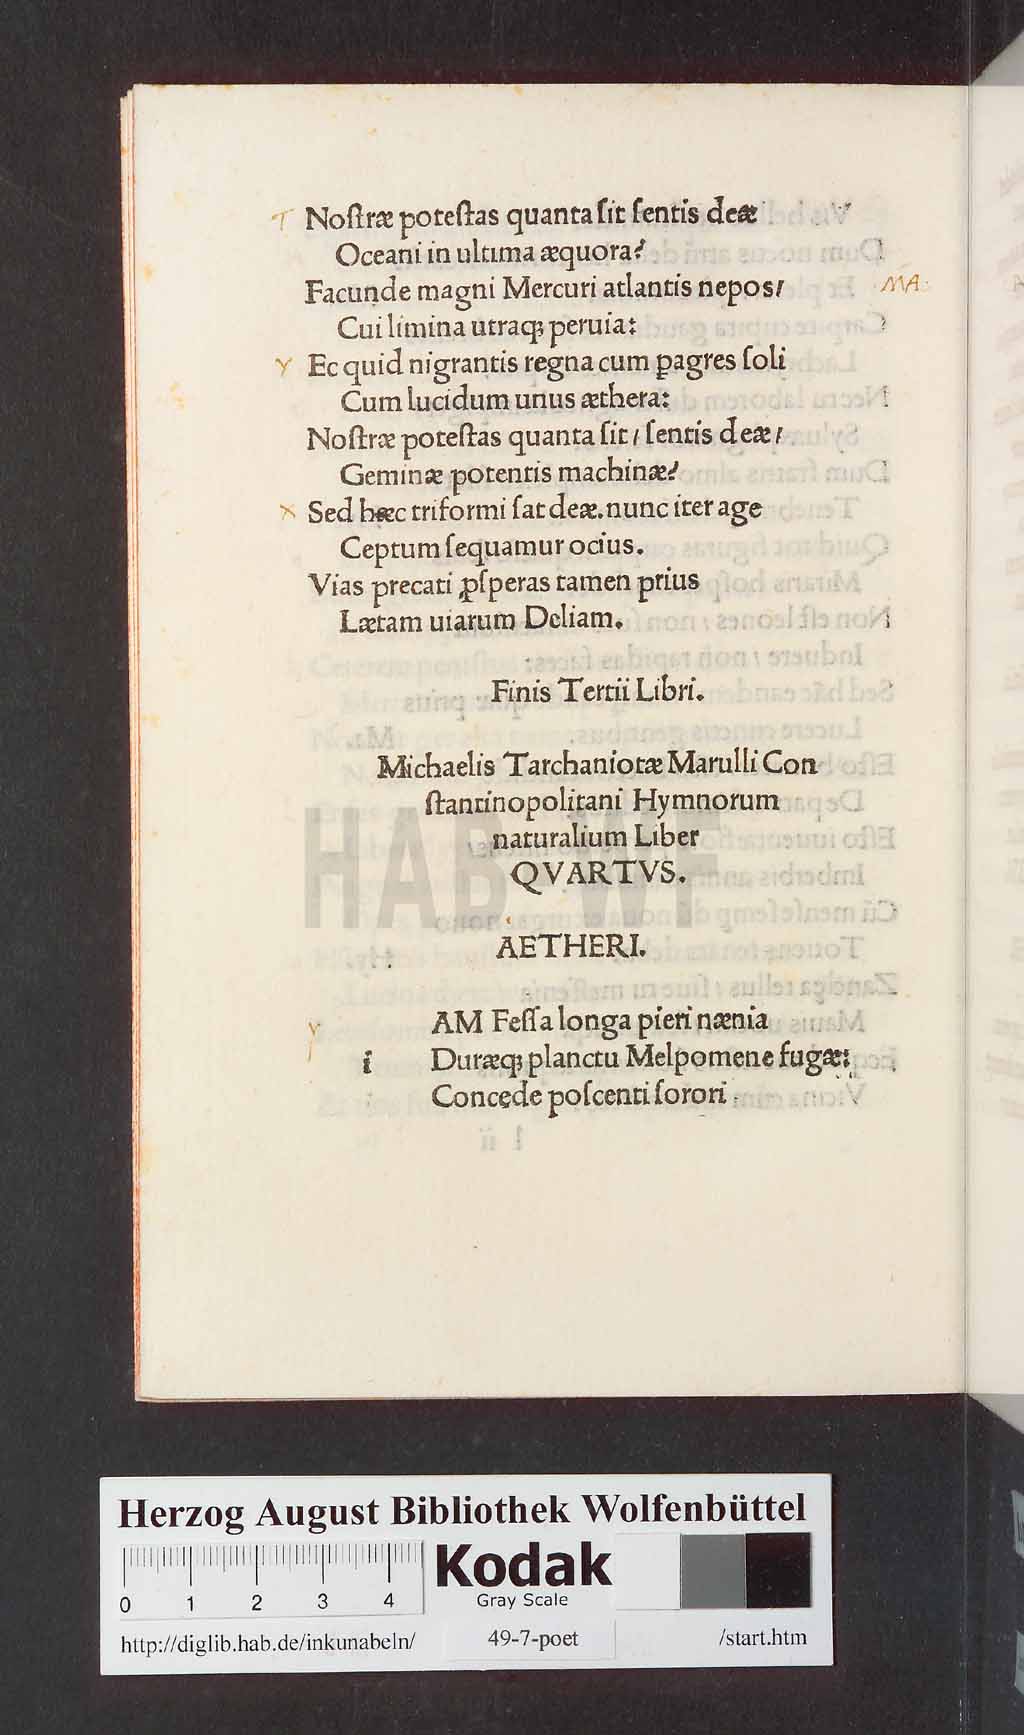 T Noſtræ poteſtas quanta ſit ſentis deæ
Oceani in ultima æquora?
Facunde magni Mercuri atlantis nepos/ MA
Cui limina utraqꝫ peruia:
Y Ec quid nigrantis regna cum ꝑagres ſoli
Cum lucidum unus æthera:
Noſtræ poteſtas quanta ſit/ ſentis deæ/
Geminæ potentis machinæ?
X Sed hæc triformi ſat deæ. nunc iter age
Ceptum ſequamur ocius.
Vias precati ꝓſperas tamen prius
Lætam uiarum Deliam.
Finis Tertii Libri.
Michaelis Tarchaniotæ Marulli Con
ſtantinopolitani Hymnorum
naturalium Liber
QVARTVS.
HAB-WF
AETHERI.
AM Feſſa longa pieri nænia
i Duræqꝫ planctu Melpomene fugæ:
Concede poſcenti ſorori
Herzog August Bibliothek Wolfenbüttel
0 1 2 3 4
Kodak
Gray Scale
http://diglib.hab.de/inkunabeln/ 49-7-poet /start.htm